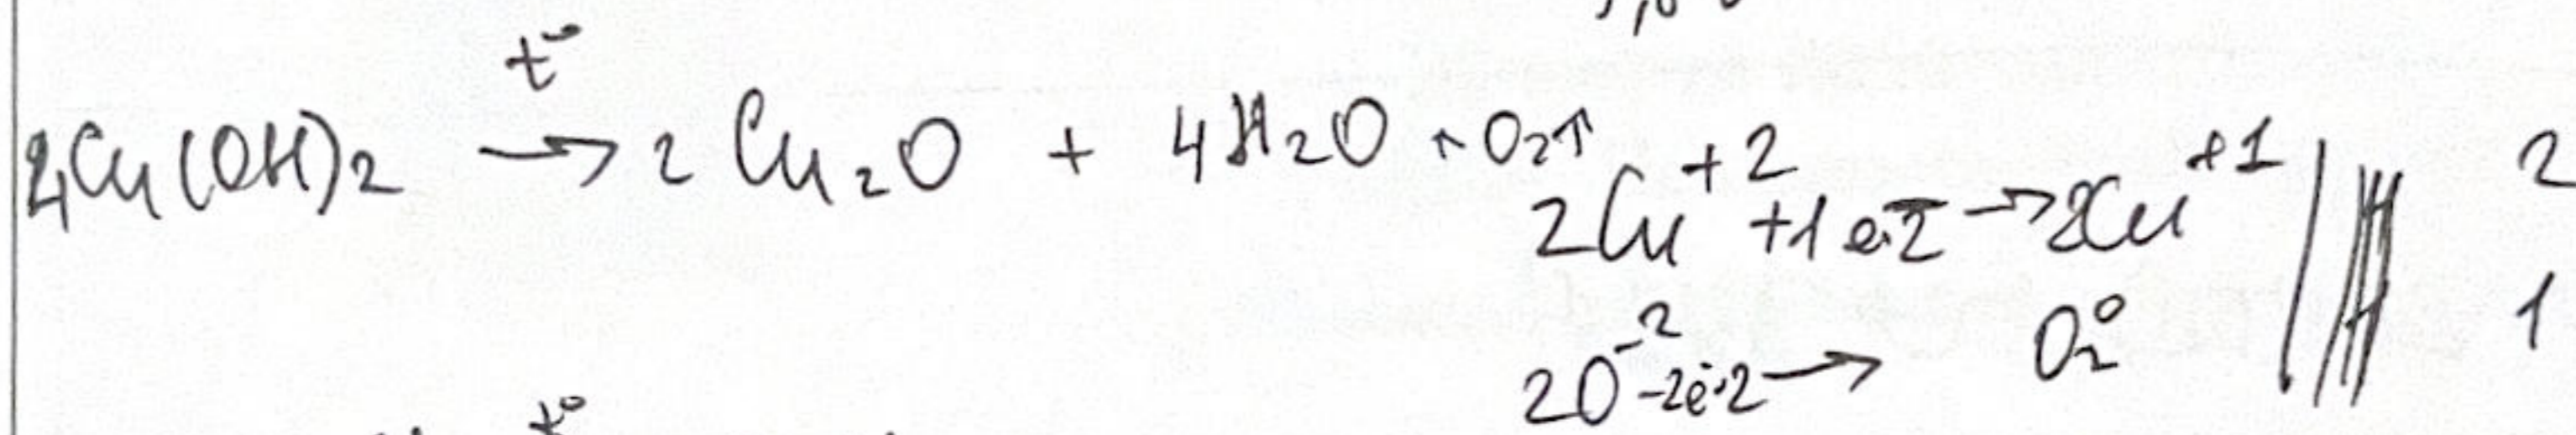 t°
4Cu(OH)₂ → 2 Cu₂O + 4H₂O + O₂↑
2Cu⁺² +1ē·2 → 2Cu⁺¹ | 2
2O⁻² -2ē·2 → O₂⁰ | 1
t°